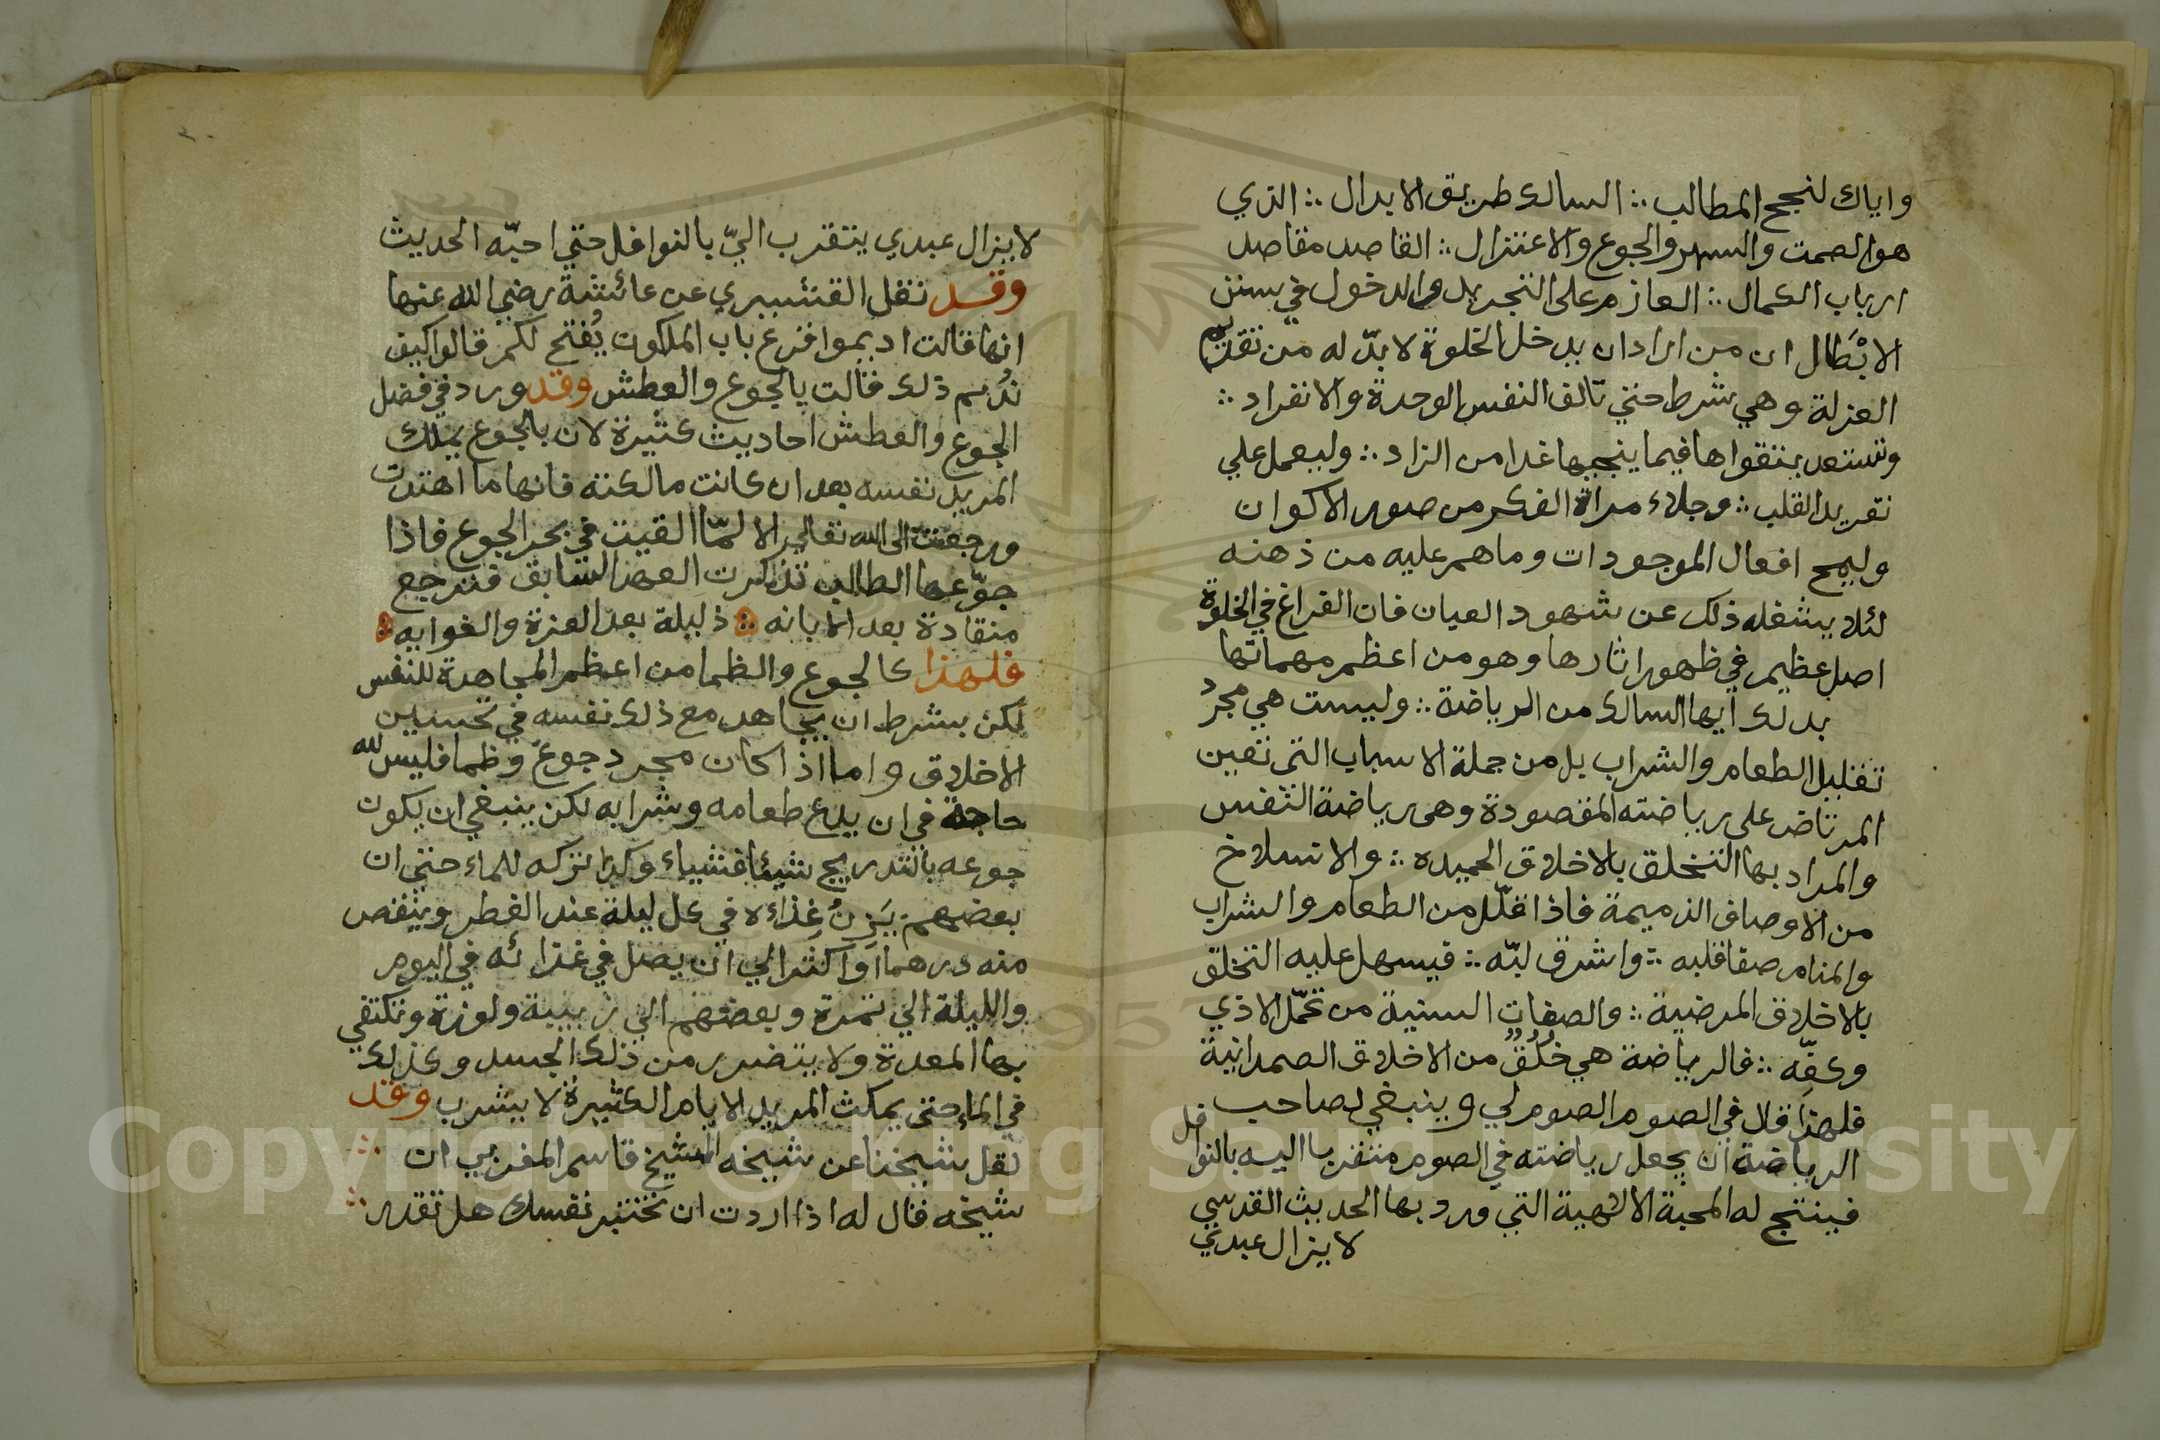 واياك لنجح المطالب ؞ السالك طريق الابدال ؞ الذي
هو الصمت والسهر والجوع والاعتزال ؞ القاصد مقاصد
ارباب الكمال ؞ العازم على التجريد والدخول في سنن
الابْطال ان من اراد ان يدخل الخلوة لا بدّ له من تقديم
العزلة وهي شرط حتي تالف النفس الوحدة والانفراد ؞
وتستعد بتقواها فيما ينجيها غدا من الزاد ؞ وليعمل علي
تفريد القلب ؞ وجلاء مراة الفكر من صور الاكوان
وليمح افعال الموجودات وما هم عليه من ذهنه
لئلا يشغله ذلك عن شهود العيان فان الفراغ في الخلوة
اصل عظيم في ظهور اثارها وهو من اعظم مهماتها
بد لك ايها السالك من الرياضة ؞ وليست هي مجرد
تقليل الطعام والشراب بل من جملة الاسباب التى تعين
المرتاض على رياضته المقصودة وهى رياضة النفس
والمراد بها التخلق بالاخلاق الحميده ؞ والانسلاخ
من الاوصاف الذميمة فاذا قلّل من الطعام والشراب
والمنام صفا قلبه ؞ واشرق لبّه ؞ فيسهل عليه التخلق
بالاخلاق المرضية ؞ والصفات السنية من تحمّل الاذي
وكفّه ؞ فالرياضة هي خُلُقٌ من الاخلاق الصمدانية
فلهذا قال في الصوم الصوم لي وينبغي لصاحب
الرياضة ان يجعل رياضته في الصوم متقربا اليه بالنوافل
فينتج له المحبة الالهية التي ورد بها الحديث القدسي
لا يزال عبدي
٣٠
لا يزال عبدي يتقرب اليّ بالنوافل حتي احبّه الحديث
وقد نقل القشيري عن عائشة رضي الله عنها
انها قالت اديموا قرع باب الملكوت يُفتح لكم قالوا كيف
نُديم ذلك قالت بالجوع والعطش وقد ورد في فضل
الجوع والعطش احاديث كثيرة لان بالجوع يملك
المريد نفسه بعد ان كانت مالكته فانها ما اهتدت
ورجعت الى الله تعالي الا لمّا القيت في بحر الجوع فاذا
جوّعها الطالب تذكرت العهد السابق فترجع
منقادة بعد الابانه ؞ ذليلة بعد العزة والغوايه ؞
فلهذا كالجوع والظما من اعظم المجاهدة للنفس
لكن بشرط ان يجاهد مع ذلك نفسه في تحسين
الاخلاق واما اذا كان مجرد جوع وظما فليس لله
حاجة في ان يدع طعامه وشرابه لكن ينبغي ان يكون
جوعه بالتدريج شيئا فشياء وكذا تركه للماء حتي ان
بعضهم يَزِنُ غِذاءه في كل ليلة عند الفطر وينقص
منه درهما او اكثر الي ان يصل في غذائه في اليوم
والليلة الي تمرة وبعضهم الي زبيبة ولوزة وتكتفي
بها المعدة ولا يتضرر من ذلك الجسد وكذلك
في الماء حتى يمكث المريد الايام الكثيرة لا يشرب وقد
نقل شيخنا عن شيخه الشيخ قاسم المغربي ان ؞
شيخه قال له اذا اردت ان تختبر نفسك هل تقدر ؞
Copyright © King Saud University